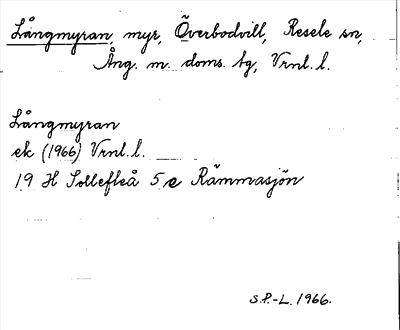 Långmyran, myr, Överbodvill, Resele sn,
Ång. m. doms. tg, Vrnl. l.
Långmyran
ek (1966) Vrnl. l.
19 H Sollefteå 5 e Rämmasjön
S.P.-L. 1966.